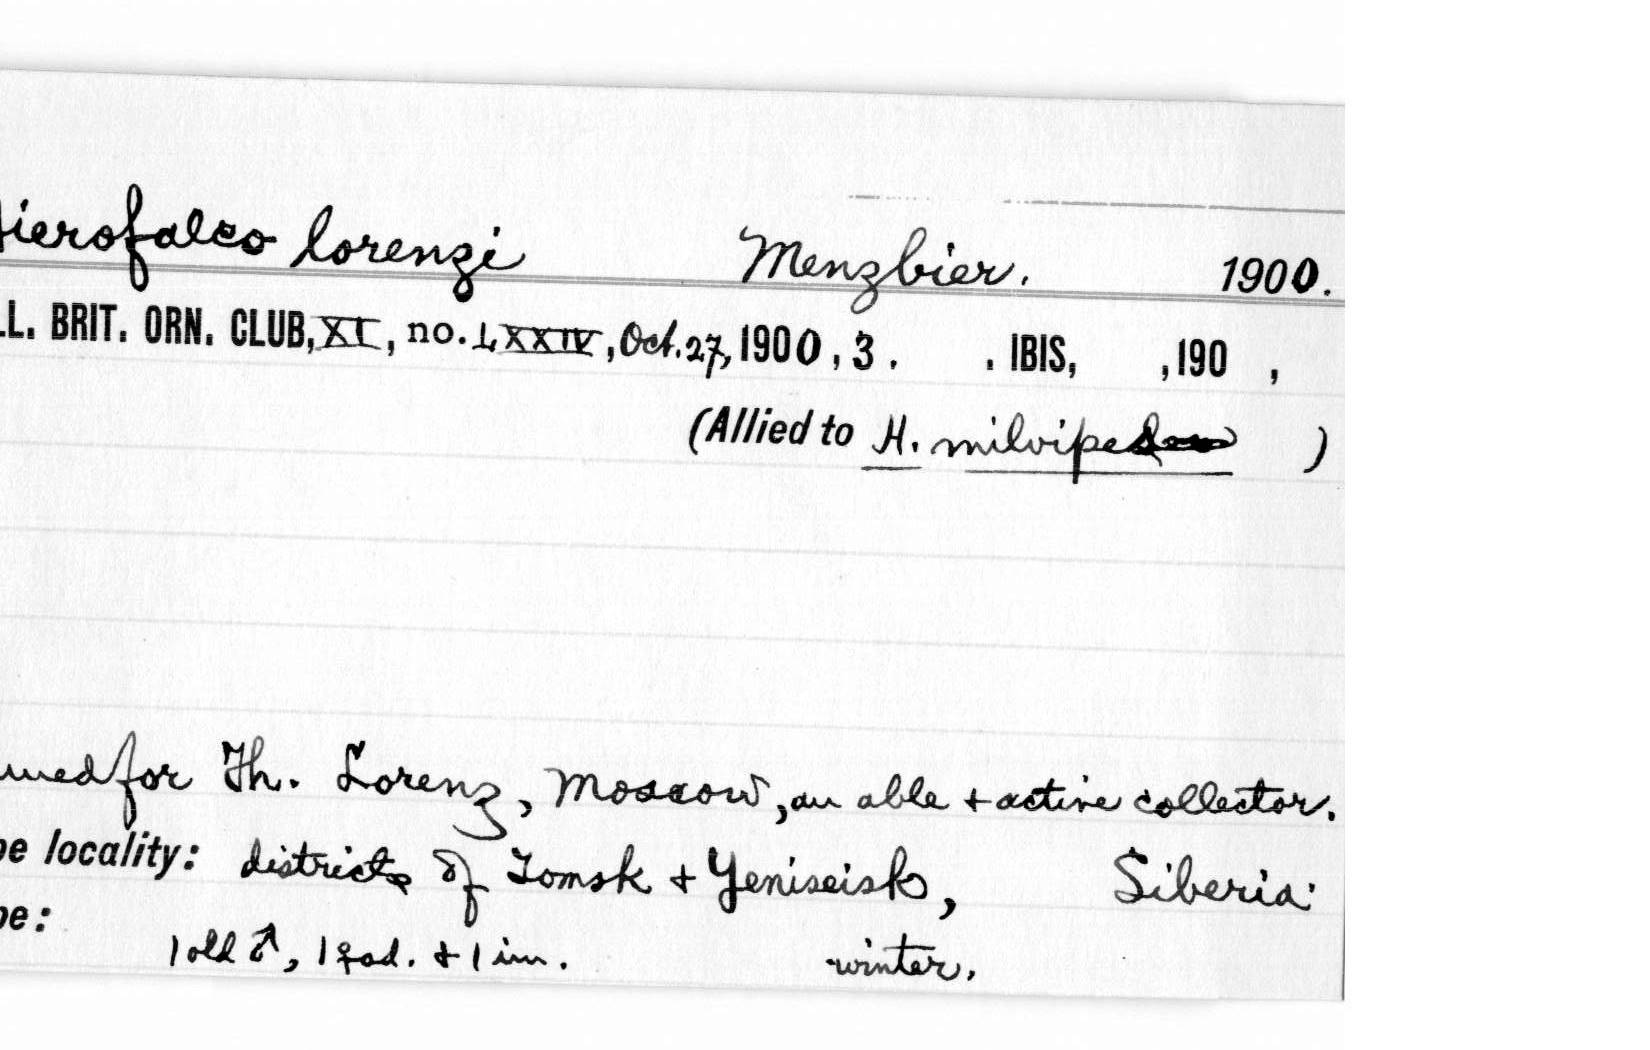 Hierofalco lorenzi Menzbier. 1900.
LL. BRIT. ORN. CLUB, XI, no. LXXIV, Oct. 27, 1900, 3. . IBIS, , 190 ,
(Allied to H. milvipes )
amed for Th. Lorenz, Moscow, an able + active collector.
pe locality: districts of Tomsk + Yeniseisk, Siberia:
pe: 1 old ♂, 1 ♀ ad. + 1 im. winter.